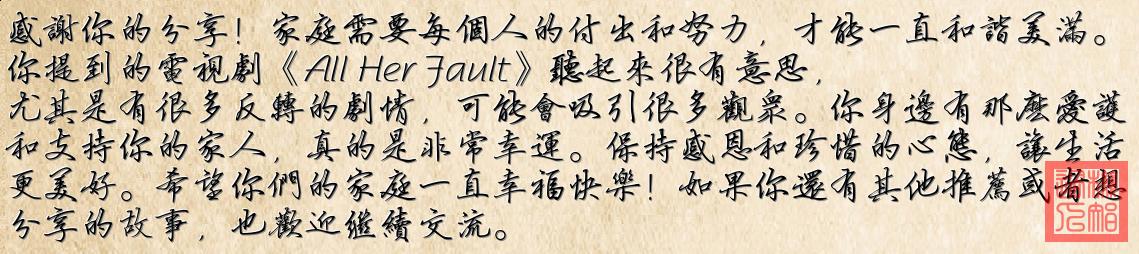 感謝你的分享！家庭需要每個人的付出和努力，才能一直和諧美滿。
你提到的電視劇《All Her Fault》聽起來很有意思，
尤其是有很多反轉的劇情，可能會吸引很多觀眾。你身邊有那麼愛護
和支持你的家人，真的是非常幸運。保持感恩和珍惜的心態，讓生活
更美好。希望你們的家庭一直幸福快樂！如果你還有其他推薦或者想
分享的故事，也歡迎繼續交流。